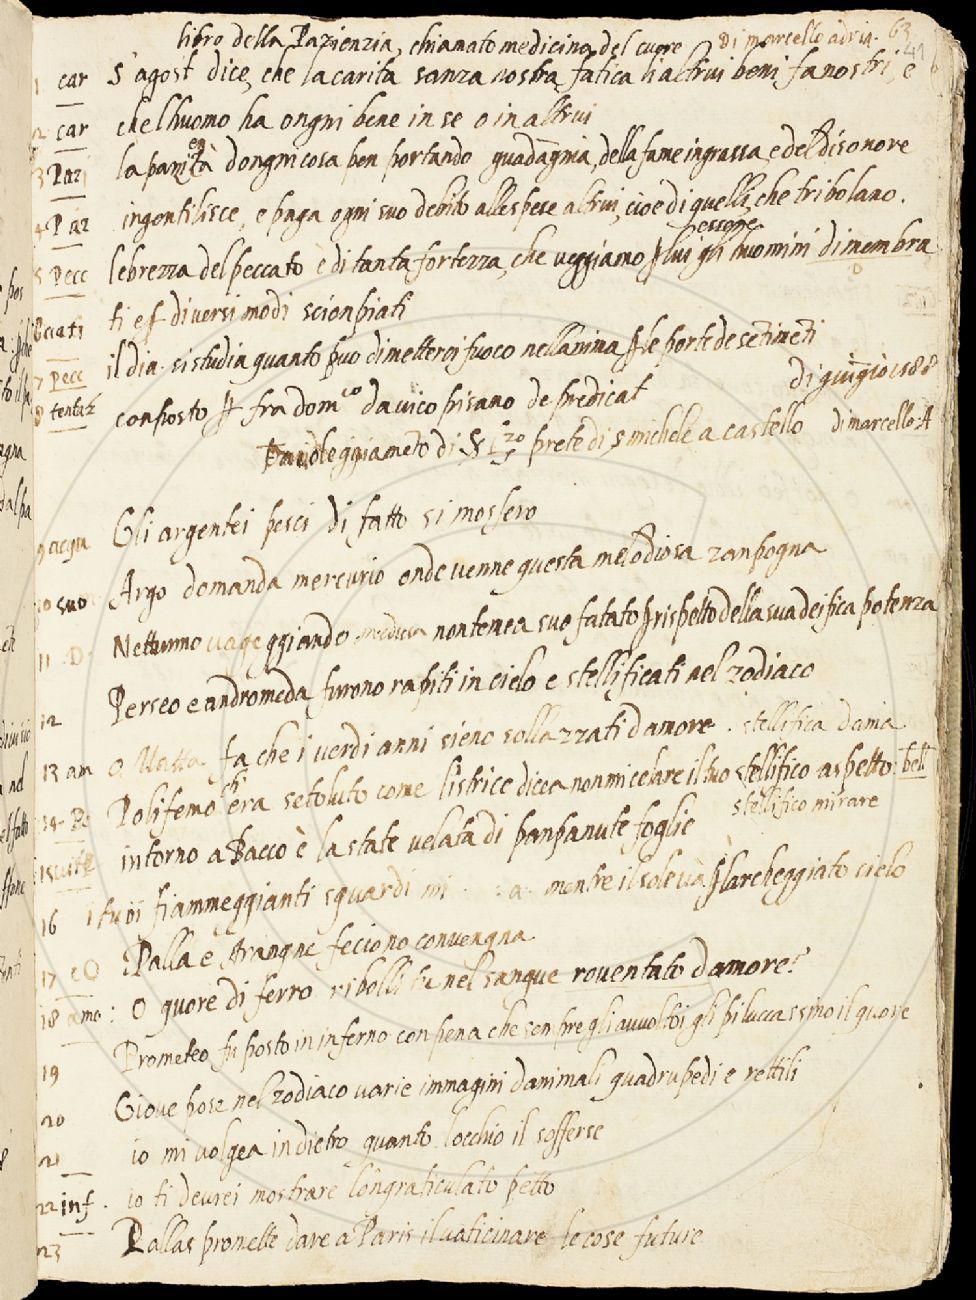 libro della Pazienzia, chiamato medicina del cuore di marcello adria. 63
1 car S agost dice, che la carita sanza nostra fatica li altrui beni fa nostri, e
2 car che lhuomo ha ongni bene in se o in altrui
3 Paz la patientia dongni cosa ben portando guadagnia, della fame ingrassa, e del disonore
4 Paz ingentilisce, e paga ogni suo debito allespese altrui, cioè di quelli, che tribolano.
essere
5 pecc lebrezza del peccato è di tanta fortezza, che veggiamo plui gli huomini dimembra
ti e diversi modi scionpiati
7 pecc il dia. si studia quanto puo di metterci fuoco nellanima p le porte de setimeti
8 tentaz conposto fra domco da vico pisano de predicat di giugnio 1588
di S Lzo prete di s michele a castello di marcello A
9 acqu Gli argentei pesci di fatto si mossero
10 suo Argo domanda mercurio onde venne questa melodiosa zanpogna
11 D Nettunno vageggiando medusa non temea suo fatato p rispetto della sua deifica potenza
12 Perseo e andromeda furono rapiti in cielo e stellificati nel zodiaco
13 am o Matta fa che i verdi anni sieno sollazzati damore. stellifica dania
14 Po Polifemo chera setoluto come listrice dicea non mi celare il tuo stellifico aspetto bell
stellifico mirare
15 vite intorno a Bacco è la state velata di panpanute foglie
16 i tuoi fiammeggianti sguardi mi a mentre il sole và p larcheggiato cielo
17 co Palla e Arangne feciono convengna
18 amo: O quore di ferro ribolli tu nel sangue roventato damore?
19 Prometeo fu posto in inferno con pena che senpre gli avvoltoi gli piluccassino il quore
20 Giove pose nel zodiaco varie immagini danimali quadrupedi e rettili
21 io mi volgea indietro quanto locchio il sofferse
22 inf. io ti devrei mostrare longraticulato petto
23 Pallas promette dare a Paris il vaticinare le cose future